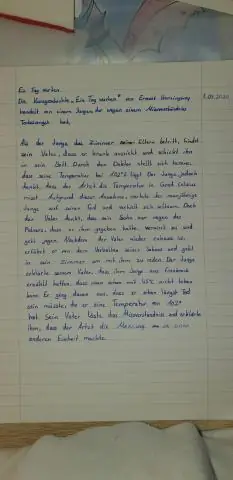 Ein Tag warten.
Die Kurzgeschichte „Ein Tag warten" von Ernest Hemingway
handelt von einem Jungen, der wegen einem Missverständnis
Todesangst hat.
Als der Junge das Zimmer seiner Eltern betritt, findet
sein Vater, dass er krank aussieht und schickt ihn
in sein Bett. Durch den Doktor stellt sich heraus,
dass seine Temperatur bei 102° liegt. Der Junge jedoch
denkt, dass der Artzt die Temperatur in Grad Celsius
misst. Aufgrund dieser Annahme, wartete der neunjährige
Junge auf seinen Tod und verhielt sich seltsam. Doch
der Vater denkt, dass sein Sohn nur wegen des
Fiebers, dass er ihm gegeben hatte, verwirrt sei und
geht jagen. Nachdem der Vater wieder zuhause ist,
erfährt er von dem Verhalten seines Sohnes und geht
in sein Zimmer um mit ihm zu reden. Der Junge
erklärte seinem Vater, dass ihm Jungs aus Frankreich
erzählt hatten, dass man schon mit 45°C nicht leben
kann. Er ging davon aus, dass er schon längst Tod
sein müsste, da er eine Temperatur von 102°
hat. Sein Vater löste das Missverständnis und erklärte
ihm, dass der Artzt die Messung in einer
anderen Einheit machte.